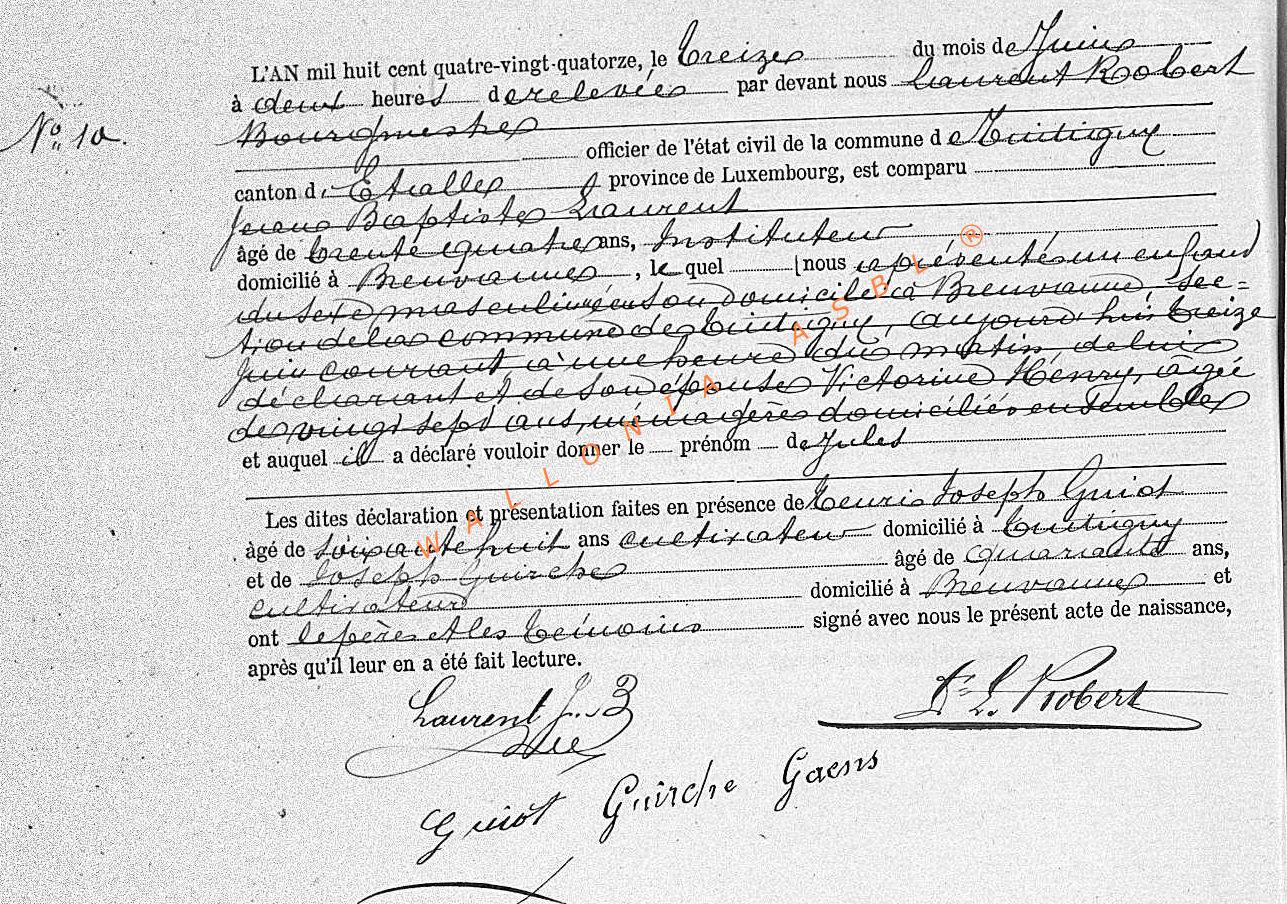 L'AN mil huit cent quatre-vingt-quatorze, le treize du mois de Juin
à deux heures de relevée par devant nous Laurent Robert
No 10.
Bourgmestre
officier de l'état civil de la commune de Tintigny
canton d'Etalle province de Luxembourg, est comparu
Jean Baptiste Laurent
âgé de trente quatre ans, Instituteur
domicilié à Breuvanne, le quel nous a présenté un enfant
du sexe masculin né en son domicile à Breuvanne, sec=
tion de la commune de Tintigny, aujourd'hui treize
Juin courant, à une heure du matin, de lui
déclarant et de son épouse Victorine Henry, âgée
de vingt sept ans, ménagère domiciliés ensemble
et auquel il a déclaré vouloir donner le prénom de Jules
Les dites déclaration et présentation faites en présence de Joseph Guiot
âgé de soixante huit ans cultivateur domicilié à Tintigny
et de Joseph Guirche âgé de quarante ans,
cultivateur domicilié à Breuvanne et
ont le père et les témoins signé avec nous le présent acte de naissance,
après qu'il leur en a été fait lecture.
Laurent J.-B
Dr L. Robert
Guiot Guirche Gaens
WALLONIA ASBL ®